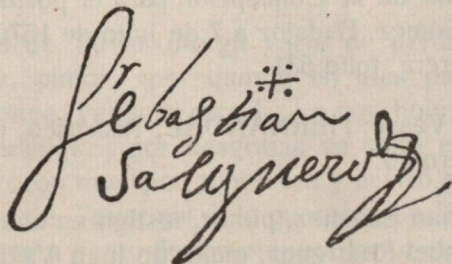 Sebastian
Salguero